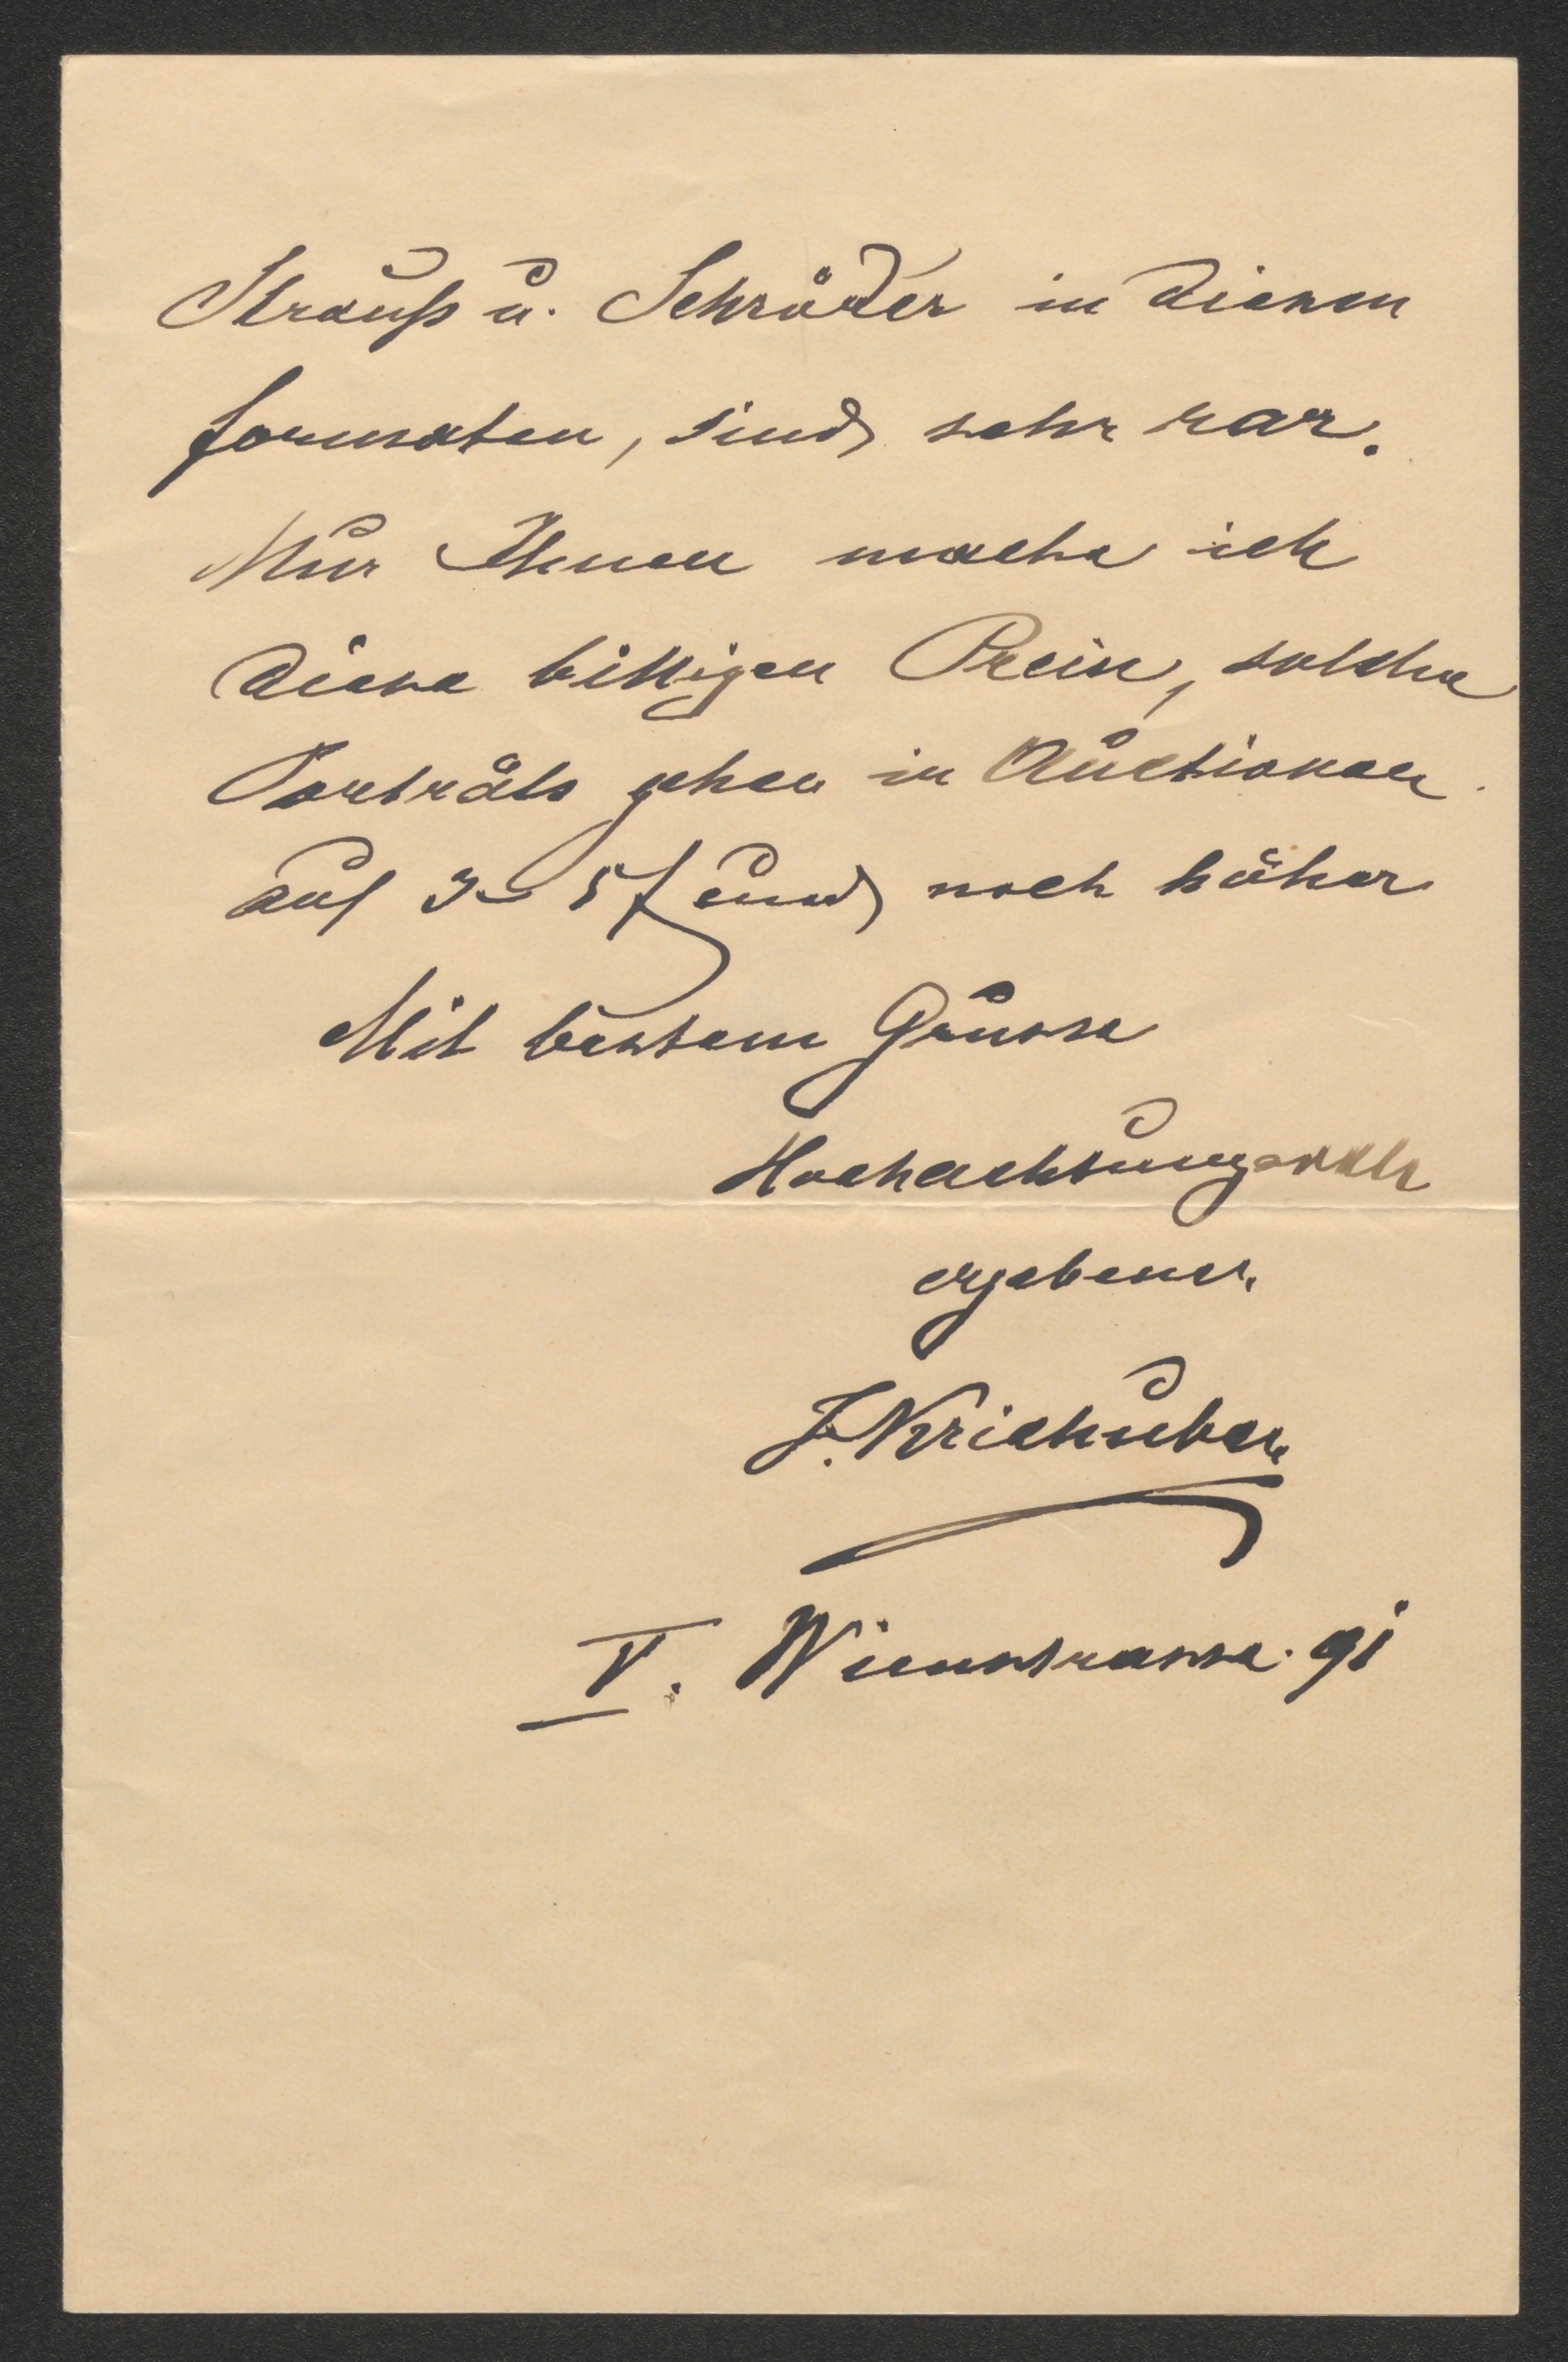 Strauß u. Schröder in diesen
formaten, sind sehr rar.
Nur Ihnen mache ich
diese billigen Preise, solche
Porträts gehen in Auctionen
auf 3–5 f und noch höher
Mit bestem Grusse
Hochachtungsvoll
ergebener
J. Kriehuber
V. Wienstrasse. 91